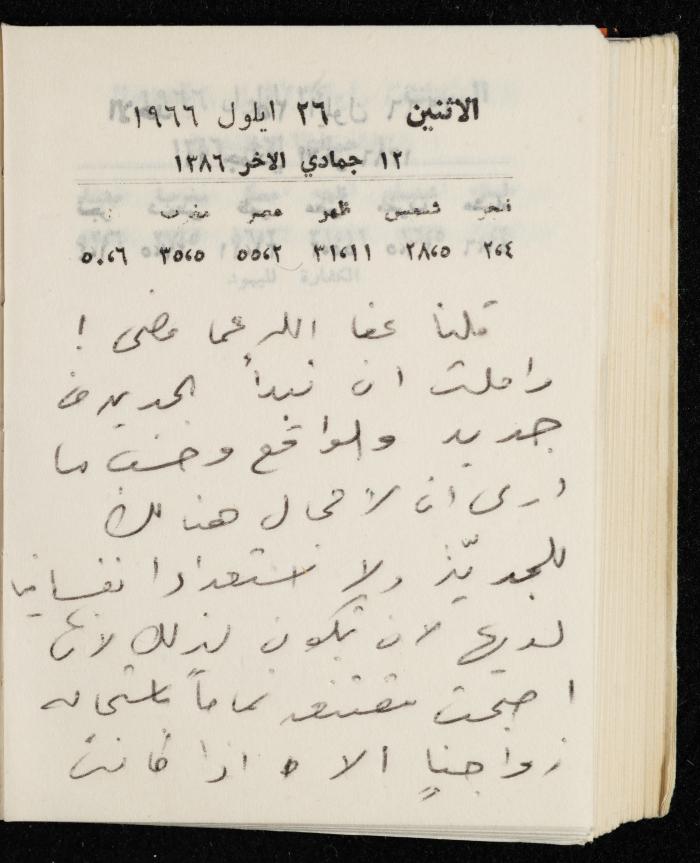 الاثنين ٢٦ ايلول ١٩٦٦
١٢ جمادي الاخر ١٣٨٦
فجر شمس ظهر عصر مغرب
٢٦،٤ ٢٨،٥ ٣١،١١ ٥٥،٢ ٣٥،٥ ٥٠،٦
قلنا عفا الله عما مضى !
واملت ان نبدأ الجديد من
جديد والواقع وحسب ما
ارى ان لا مجال هنالك
للجديّة ولا استعدادا نفسانيا
لديها لان تكون لذلك لانها
اصبحت مقتنعه تماماً باستحاله
زواجنا الا اذا كانت